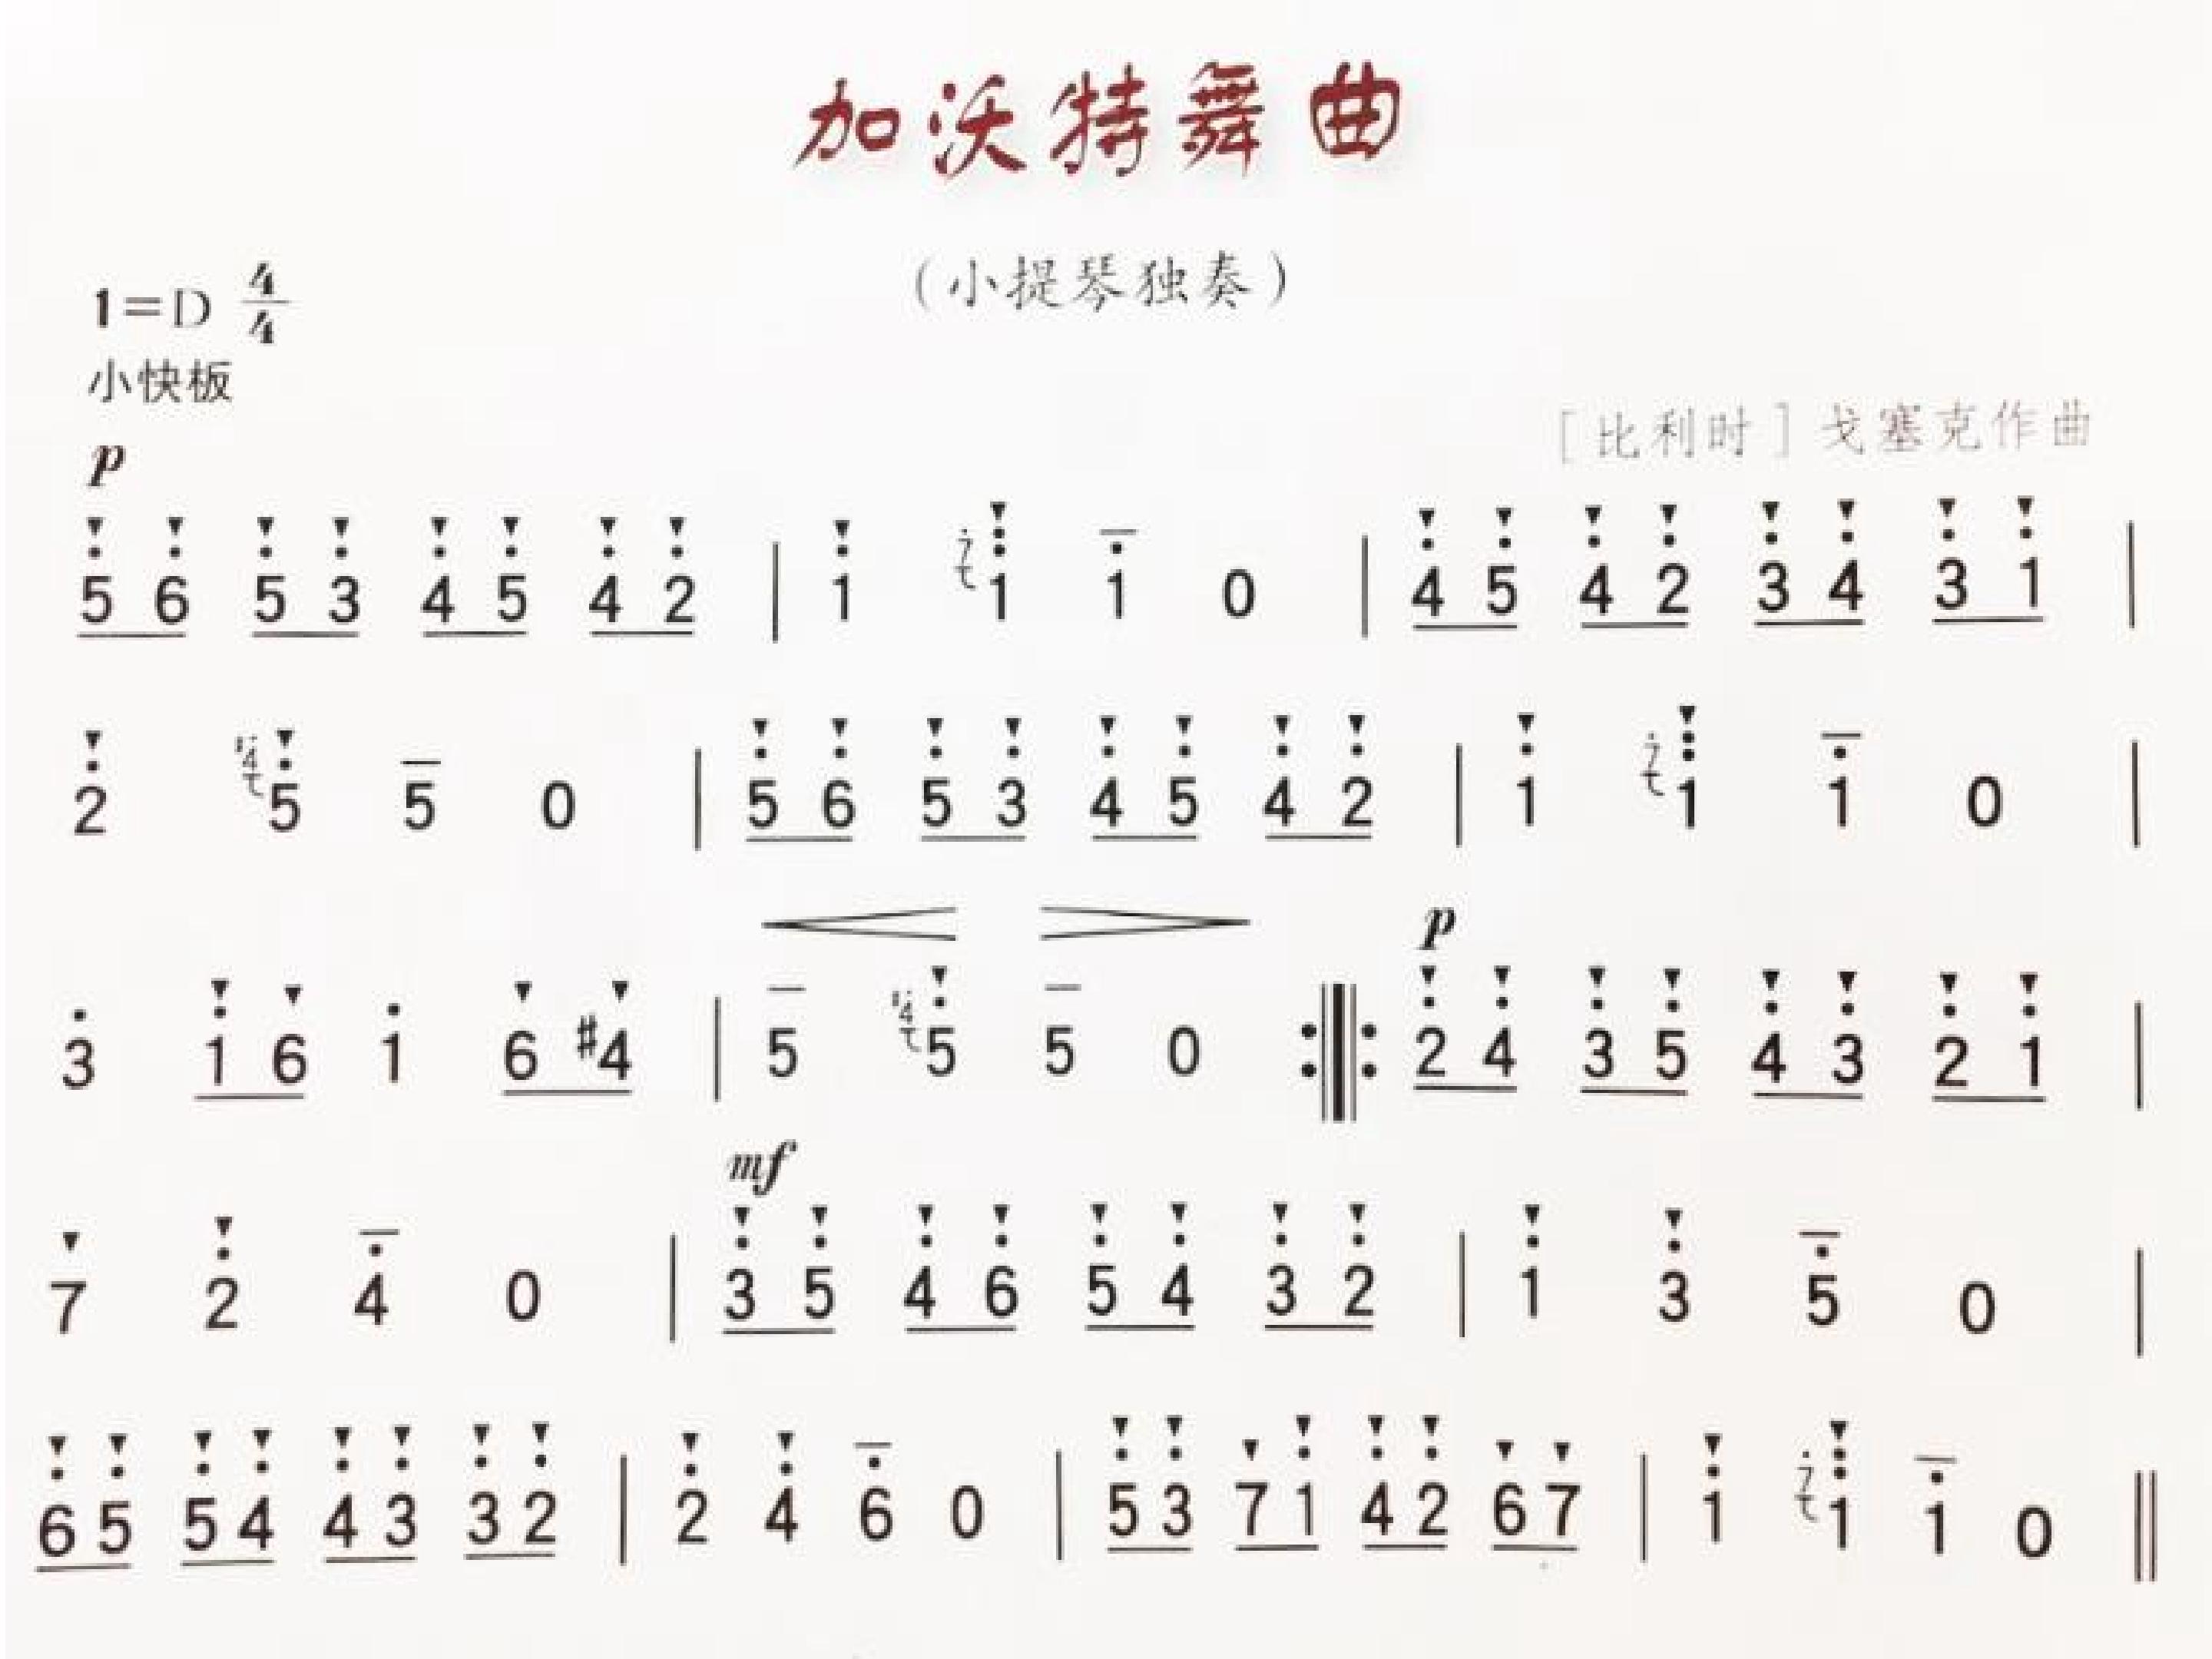 加沃特舞曲
(小提琴独奏)
1=D 4/4
小快板
[比利时] 戈塞克作曲
p
5 6 5 3 4 5 4 2 | 1 1 1 0 | 4 5 4 2 3 4 3 1 |
2 5 5 0 | 5 6 5 3 4 5 4 2 | 1 1 1 0 |
p
3 1 6 1 6 #4 | 5 5 5 0 :||: 2 4 3 5 4 3 2 1 |
mf
7 2 4 0 | 3 5 4 6 5 4 3 2 | 1 3 5 0 |
6 5 5 4 4 3 3 2 | 2 4 6 0 | 5 3 7 1 4 2 6 7 | 1 1 1 0 ||